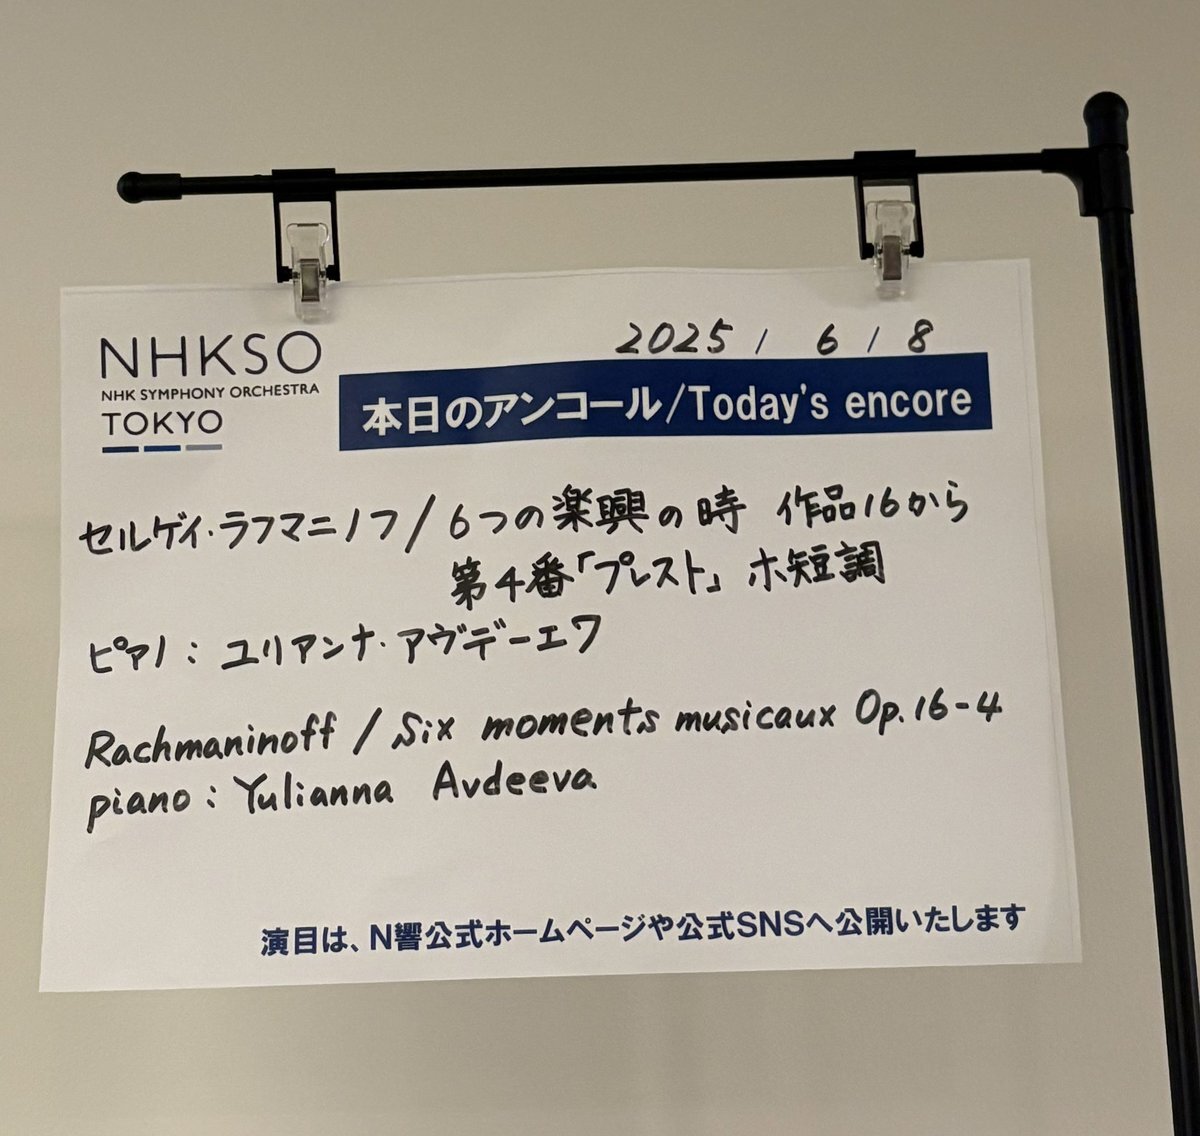 NHKSO
NHK SYMPHONY ORCHESTRA
TOKYO
2025 / 6 / 8
本日のアンコール/Today's encore
セルゲイ・ラフマニノフ/6つの楽興の時 作品16から
第4番「プレスト」ホ短調
ピアノ:ユリアンナ・アヴデーエワ
Rachmaninoff / Six moments musicaux Op.16-4
piano : Yulianna Avdeeva
演目は、N響公式ホームページや公式SNSへ公開いたします